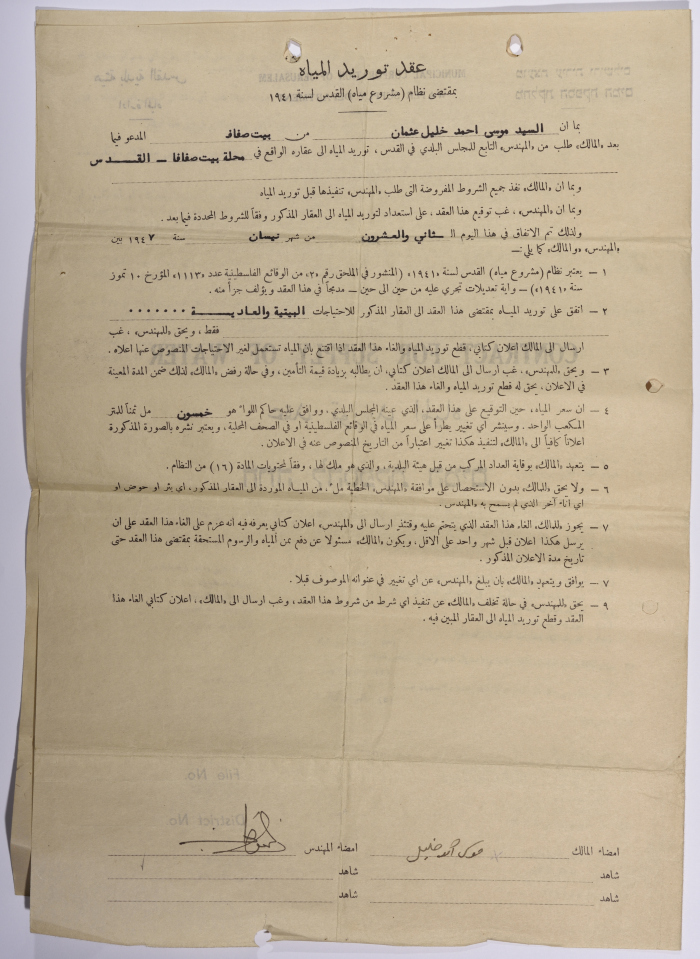 عقد توريد المياه
بمقتضى نظام (مشروع مياه) القدس لسنة ١٩٤١
بما ان السيد موسى احمد خليل عثمان من بيت صفافا المدعو فيما
بعد «المالك» طلب من «المهندس» التابع للمجلس البلدي في القدس ، توريد المياه الى عقاره الواقع في محلة بيت صفافا ــ القــدس
وبما ان «المالك» نفذ جميع الشروط المفروضة التى طلب «المهندس» تنفيذها قبل توريد المياه
وبما ان «المهندس» ، غب توقيع هذا العقد ، على استعداد لتوريد المياه الى العقار المذكور وفقاً للشروط المحددة فيما بعد .
ولذلك تم الاتفاق في هذا اليوم الـ ـثاني والعشرون من شهر نيسان سنة ١٩٤٧ بين
«المهندس» و«المالك» كما يلي :ـ
١ ــ يعتبر نظام (مشروع مياه) القدس لسنة «١٩٤١» (المنشور في الملحق رقم «٢» من الوقائع الفلسطينية عدد «١١١٣» المؤرخ ١٠ تموز
سنة «١٩٤١») ــ واية تعديلات تجري عليه من حين الى حين ــ مدمجاً في هذا العقد ويؤلف جزأ منه .
٢ ــ اتفق على توريد المياه بمقتضى هذا العقد الى العقار المذكور للاحتياجات البيتية والعاديــــة .......
فقط ، ويحق «للمهندس» ، غب
ارسال الى المالك اعلان كتابي ، قطع توريد المياه والغاء هذا العقد اذا اقتنع بان المياه تستعمل لغير الاحتياجات المنصوص عنها اعلاه .
٣ ــ ويحق «للمهندس» ، غب ارسال الى المالك اعلان كتابي ، ان يطالبه بزيادة قيمة التأمين ، وفي حالة رفض «المالك» لذلك ضمن المدة المعينة
في الاعلان ، يحق له قطع توريد المياه والغاء هذا العقد .
٤ ــ ان سعر المياه ، حين التوقيع على هذا العقد ، الذي عينه المجلس البلدي ، ووافق عليه حاكم اللواء هو خمسون مل ثمناً للمتر
المكعب الواحد . وسينشر اي تغيير يطرأ على سعر المياه في الوقائع الفلسطينية او في الصحف المحلية ، ويعتبر نشره بالصورة المذكورة
اعلاناً كافياً الى «المالك» لتنفيذ هكذا تغيير اعتباراً من التاريخ المنصوص عنه في الاعلان .
٥ ــ يتعهد «المالك» بوقاية العداد المركب من قبل هيئة البلدية ، والذي هو ملك لها ، وفقاً لمحتويات المادة (١٦) من النظام .
٦ ــ ولا يحق «للمالك» بدون الاستحصال على موافقة «المهندس» الخطية ملء ، من الميـاه الموردة الى العقار المذكور ، اي بئر او حوض او
اي اناء آخر الذي لم يسمح به «المهندس» .
٧ ــ يجوز «للمالك» الغاء هذا العقد الذي يتحتم عليه وقتئذ ارسال الى «المهندس» اعلان كتابي يعرفه فيه انه عزم على الغاء هذا العقد على ان
يرسل هكذا اعلان قبل شهر واحد على الاقل ، ويكون «المالك» مسئولا عن دفع ثمن المياه والرسوم المستحقة بمقتضى هذا العقد حتى
تاريخ مدة الاعلان المذكور .
٧ ــ يوافق ويتعهد «المالك» بان يبلغ «المهندس» عن اي تغيير في عنوانه الموصوف قبلا .
٩ ــ يحق «للمهندس» في حالة تخلف «المالك» عن تنفيذ اي شرط من شروط هذا العقد ، وغب ارسال الى «المالك» ، اعلان كتابي الغاء هذا
العقد وقطع توريد المياه الى العقار المبين فيه .
امضاء المالك موسى احمد خليل امضاء المهندس
شاهد شاهد
شاهد شاهد